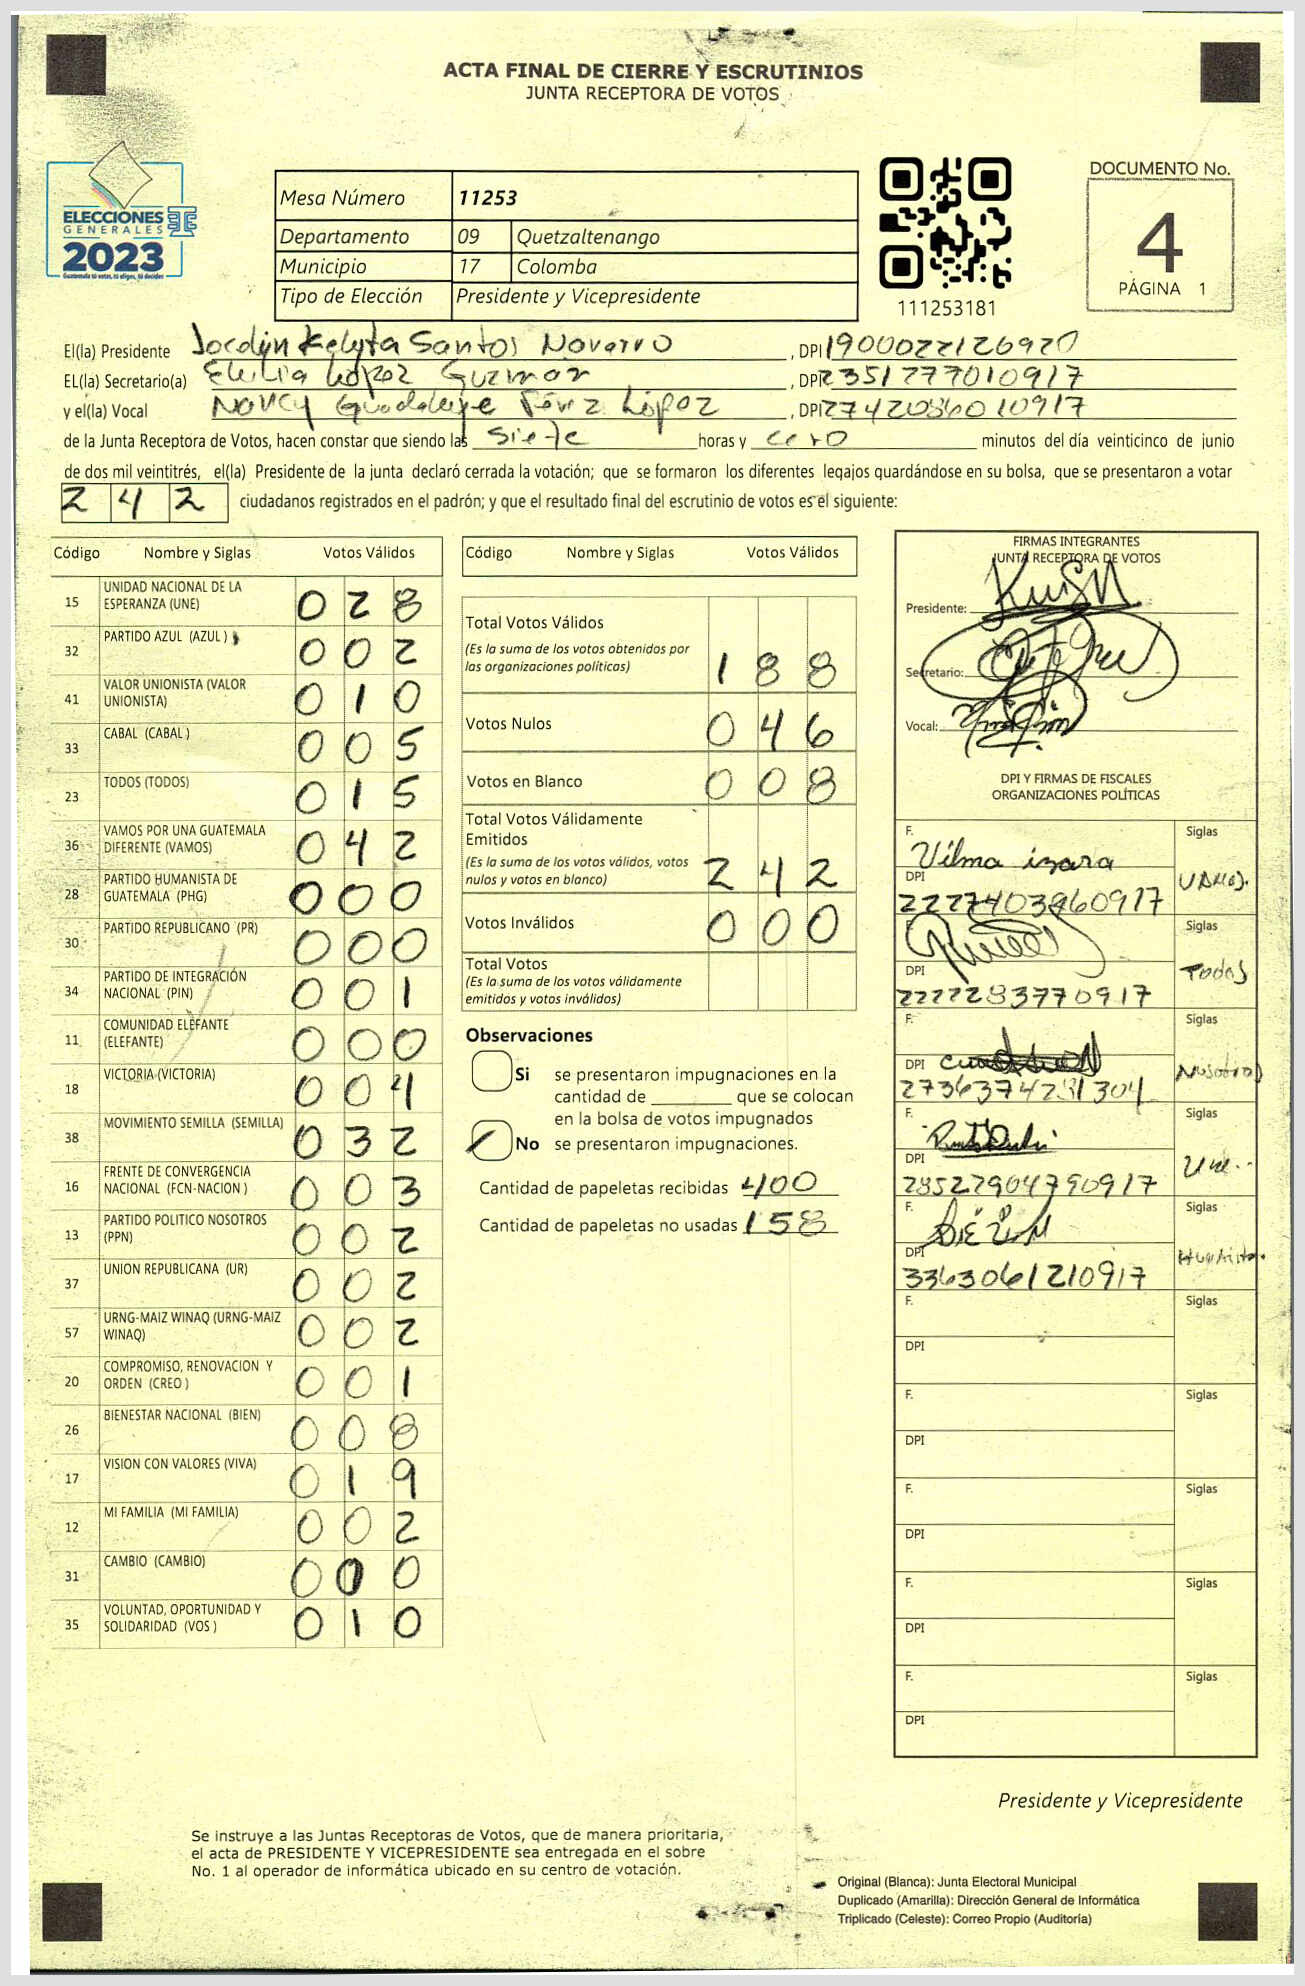 ACTA FINAL DE CIERRE Y ESCRUTINIOS
JUNTA RECEPTORA DE VOTOS
ELECCIONES
GENERALES
2023
Guatemala tú votas, tú eliges, tú decides
Mesa Número 11253
Departamento 09 Quetzaltenango
Municipio 17 Colomba
Tipo de Elección Presidente y Vicepresidente
111253181
DOCUMENTO No.
4
PÁGINA 1
El(la) Presidente Jocelyn Kelyta Santos Navarro, DPI 1900022126920
EL(la) Secretario(a) López Guzman, DPI 2351777010917
y el(la) Vocal Nancy Guadalupe Pérez López, DPI 2742086010917
de la Junta Receptora de Votos, hacen constar que siendo las siete horas y cero minutos del día veinticinco de junio
de dos mil veintitrés, el(la) Presidente de la junta declaró cerrada la votación; que se formaron los diferentes legajos guardándose en su bolsa, que se presentaron a votar
242 ciudadanos registrados en el padrón; y que el resultado final del escrutinio de votos es el siguiente:
Código Nombre y Siglas Votos Válidos
15 UNIDAD NACIONAL DE LA ESPERANZA (UNE) 028
32 PARTIDO AZUL (AZUL) 002
41 VALOR UNIONISTA (VALOR UNIONISTA) 010
33 CABAL (CABAL) 005
23 TODOS (TODOS) 015
36 VAMOS POR UNA GUATEMALA DIFERENTE (VAMOS) 042
28 PARTIDO HUMANISTA DE GUATEMALA (PHG) 000
30 PARTIDO REPUBLICANO (PR) 000
34 PARTIDO DE INTEGRACIÓN NACIONAL (PIN) 001
11 COMUNIDAD ELEFANTE (ELEFANTE) 000
18 VICTORIA (VICTORIA) 004
38 MOVIMIENTO SEMILLA (SEMILLA) 032
16 FRENTE DE CONVERGENCIA NACIONAL (FCN-NACION) 003
13 PARTIDO POLITICO NOSOTROS (PPN) 002
37 UNION REPUBLICANA (UR) 002
57 URNG-MAIZ WINAQ (URNG-MAIZ WINAQ) 002
20 COMPROMISO, RENOVACION Y ORDEN (CREO) 001
26 BIENESTAR NACIONAL (BIEN) 008
17 VISION CON VALORES (VIVA) 019
12 MI FAMILIA (MI FAMILIA) 002
31 CAMBIO (CAMBIO) 000
35 VOLUNTAD, OPORTUNIDAD Y SOLIDARIDAD (VOS) 010
Código Nombre y Siglas Votos Válidos
Total Votos Válidos
(Es la suma de los votos obtenidos por
las organizaciones políticas) 188
Votos Nulos 046
Votos en Blanco 008
Total Votos Válidamente
Emitidos
(Es la suma de los votos válidos, votos
nulos y votos en blanco) 242
Votos Inválidos 000
Total Votos
(Es la suma de los votos válidamente
emitidos y votos inválidos)
Observaciones
Si se presentaron impugnaciones en la
cantidad de ________ que se colocan
en la bolsa de votos impugnados
No se presentaron impugnaciones.
Cantidad de papeletas recibidas 400
Cantidad de papeletas no usadas 158
FIRMAS INTEGRANTES
JUNTA RECEPTORA DE VOTOS
Presidente:
Secretario:
Vocal:
DPI Y FIRMAS DE FISCALES
ORGANIZACIONES POLÍTICAS
F. Vilma Siglas
DPI VAMOS.
2227403960917
F. Siglas
DPI Todos
2222283770917
F. Siglas
DPI Nosotros
2736374231304
F. Siglas
DPI Une..
28527904790917
F. Siglas
DPI Humanista.
3363061210917
F. Siglas
DPI
F. Siglas
DPI
F. Siglas
DPI
F. Siglas
DPI
F. Siglas
DPI
Presidente y Vicepresidente
Se instruye a las Juntas Receptoras de Votos, que de manera prioritaria,
el acta de PRESIDENTE Y VICEPRESIDENTE sea entregada en el sobre
No. 1 al operador de informática ubicado en su centro de votación.
Original (Blanca): Junta Electoral Municipal
Duplicado (Amarilla): Dirección General de Informática
Triplicado (Celeste): Correo Propio (Auditoría)